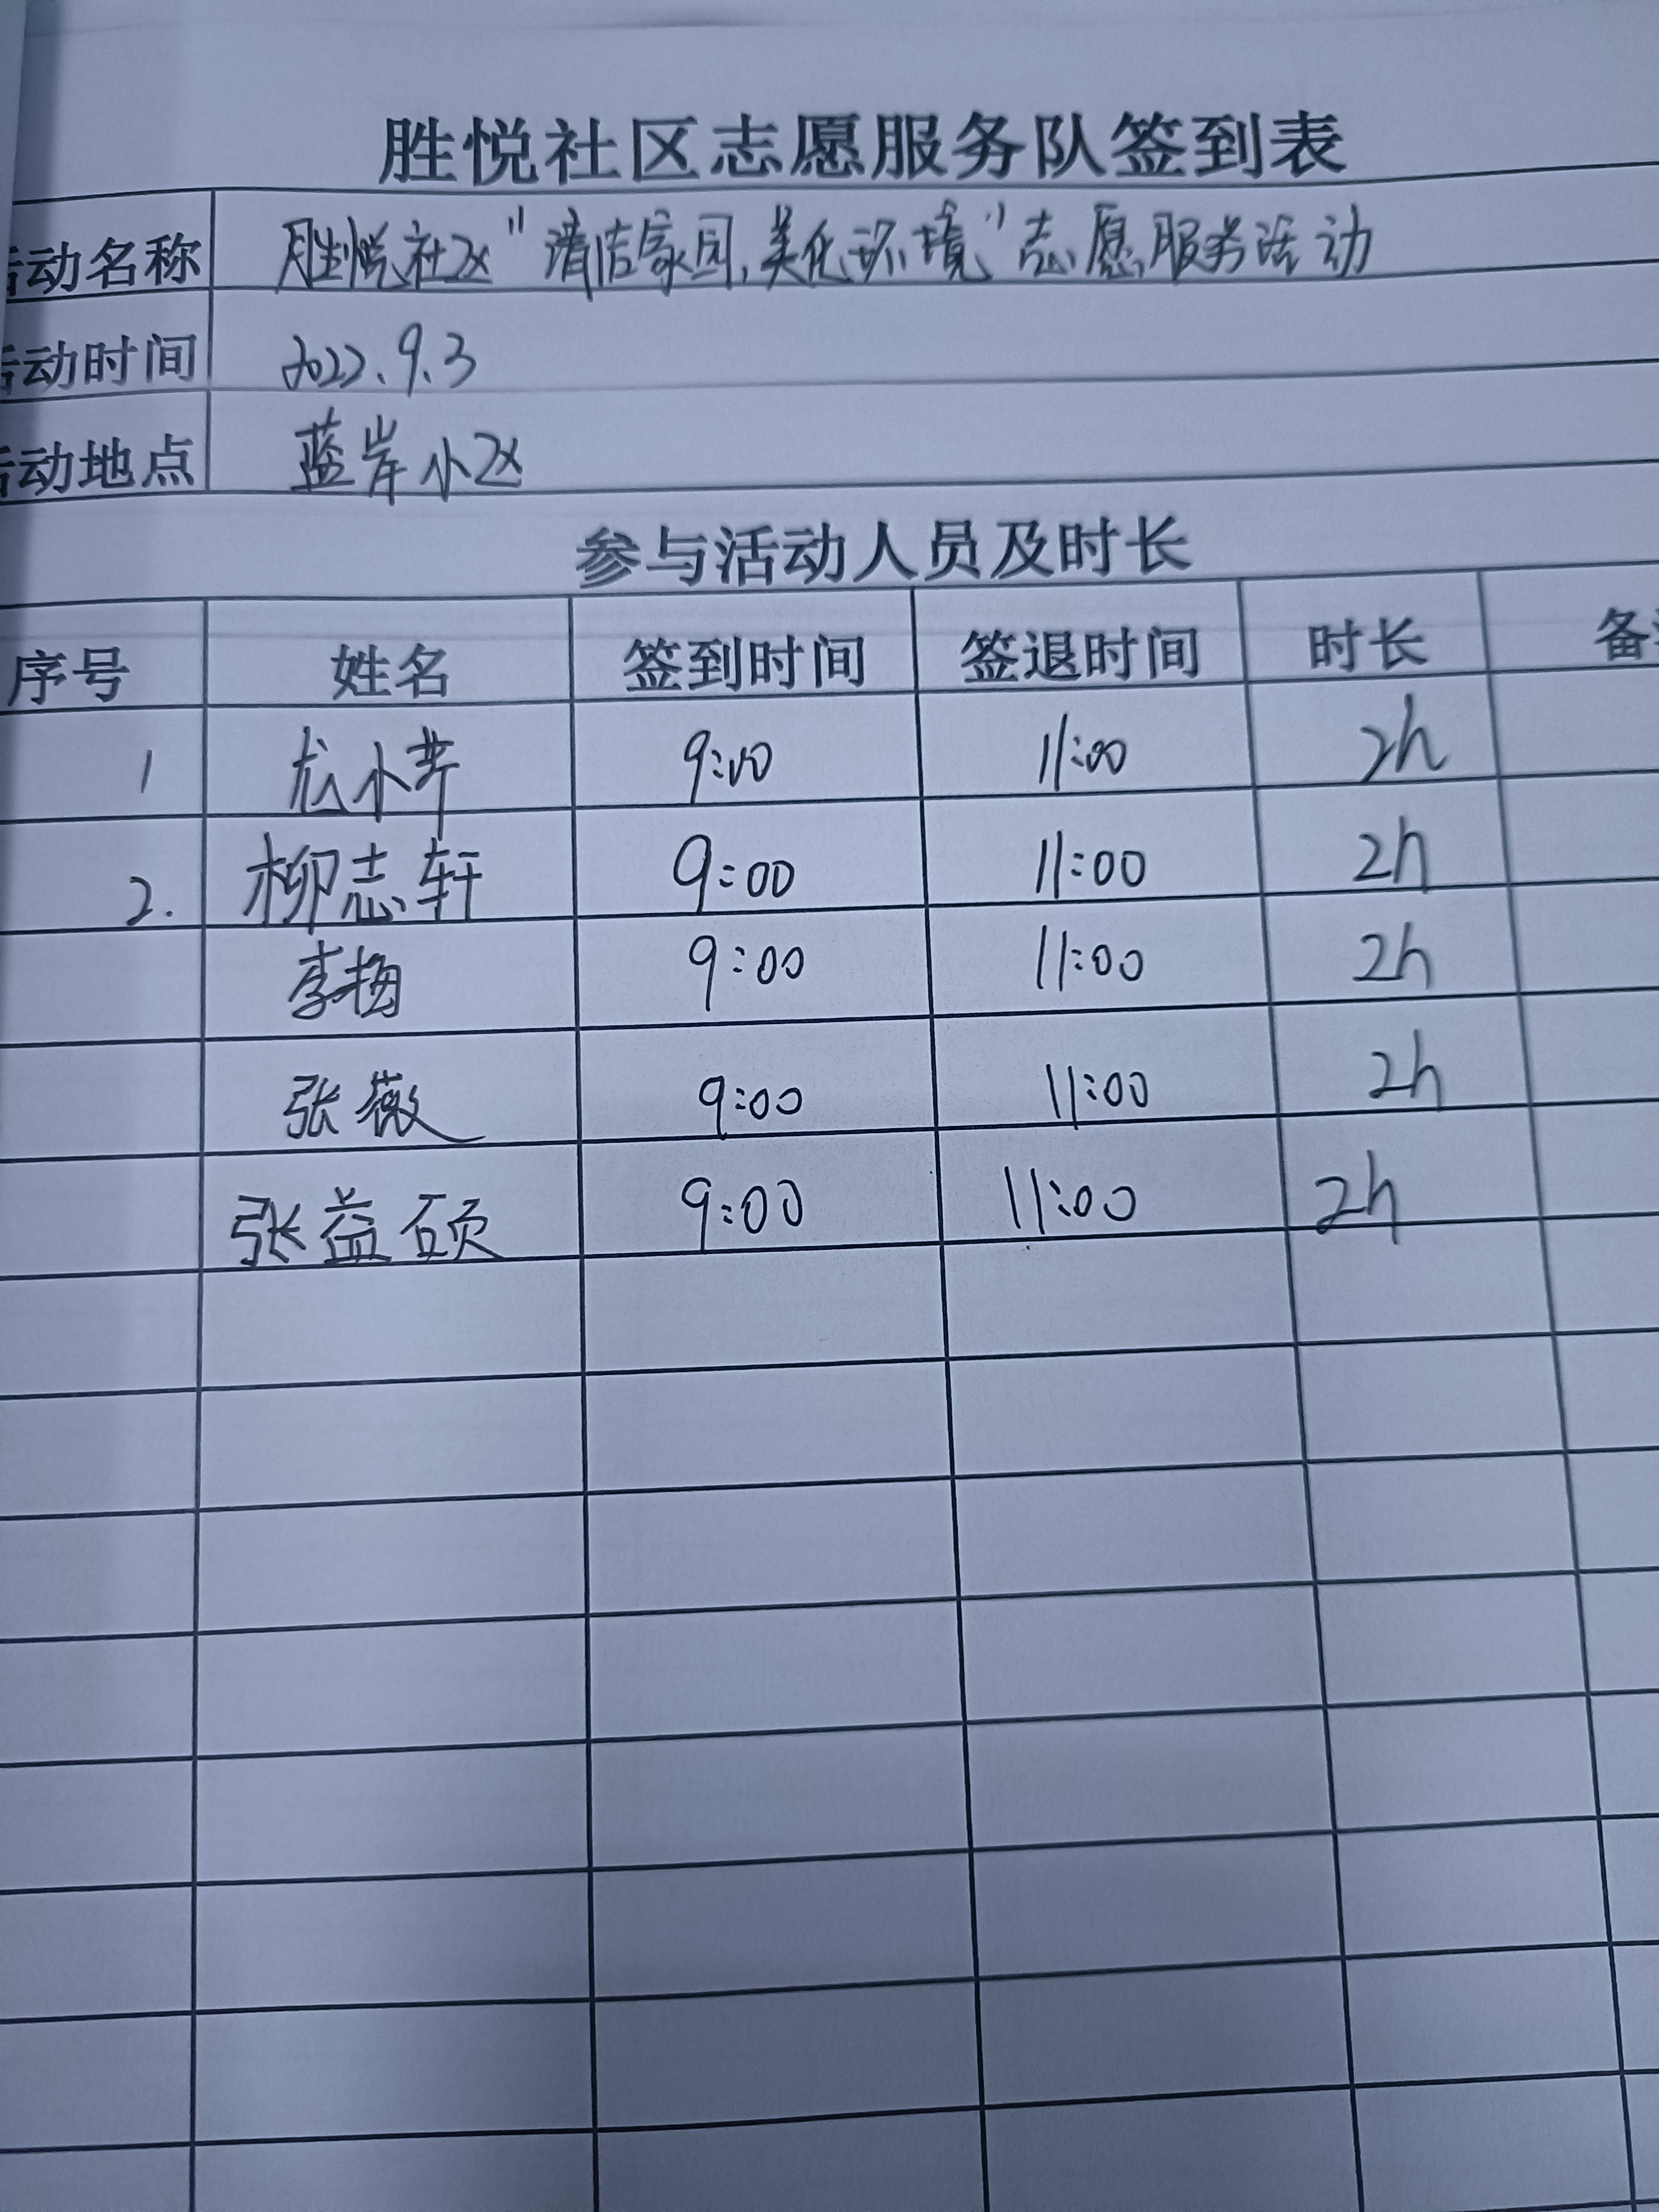 胜悦社区志愿服务队签到表
活动名称 胜悦社区"清洁家园,美化环境"志愿服务活动
活动时间 2022.9.3
活动地点 蓝岸小区
参与活动人员及时长
序号 姓名 签到时间 签退时间 时长 备
1 尤小芹 9:00 11:00 2h
2. 柳志轩 9:00 11:00 2h
李梅 9:00 11:00 2h
张薇 9:00 11:00 2h
张益硕 9:00 11:00 2h